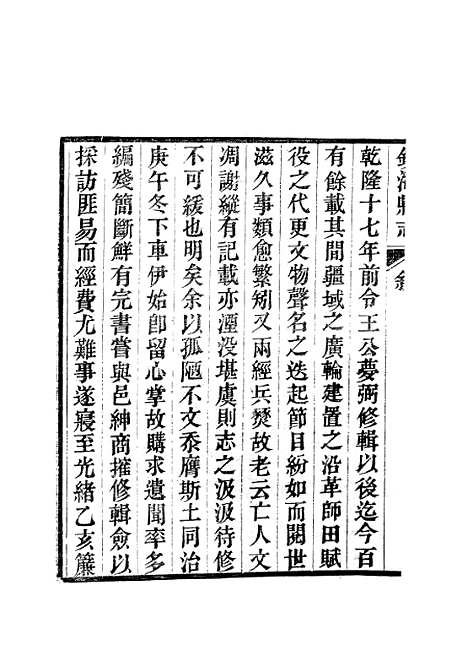 乾隆十七年前令王公夢弼修輯以後迄今百
有餘載其間疆域之廣輪建置之沿革師田賦
役之代更文物聲名之迭起節目紛如而閱世
滋久事類愈繁矧又兩經兵燹故老云亡人文
凋謝縱有記載亦湮没堪虞則志之汲汲待修
不可緩也明矣余以孤陋不文忝膺斯土同治
庚午冬下車伊始卽留心掌故購求遺聞率多
編殘簡斷鮮有完書嘗與邑紳商搉修輯僉以
採訪匪易而經費尤難事遂寢至光緒乙亥簾